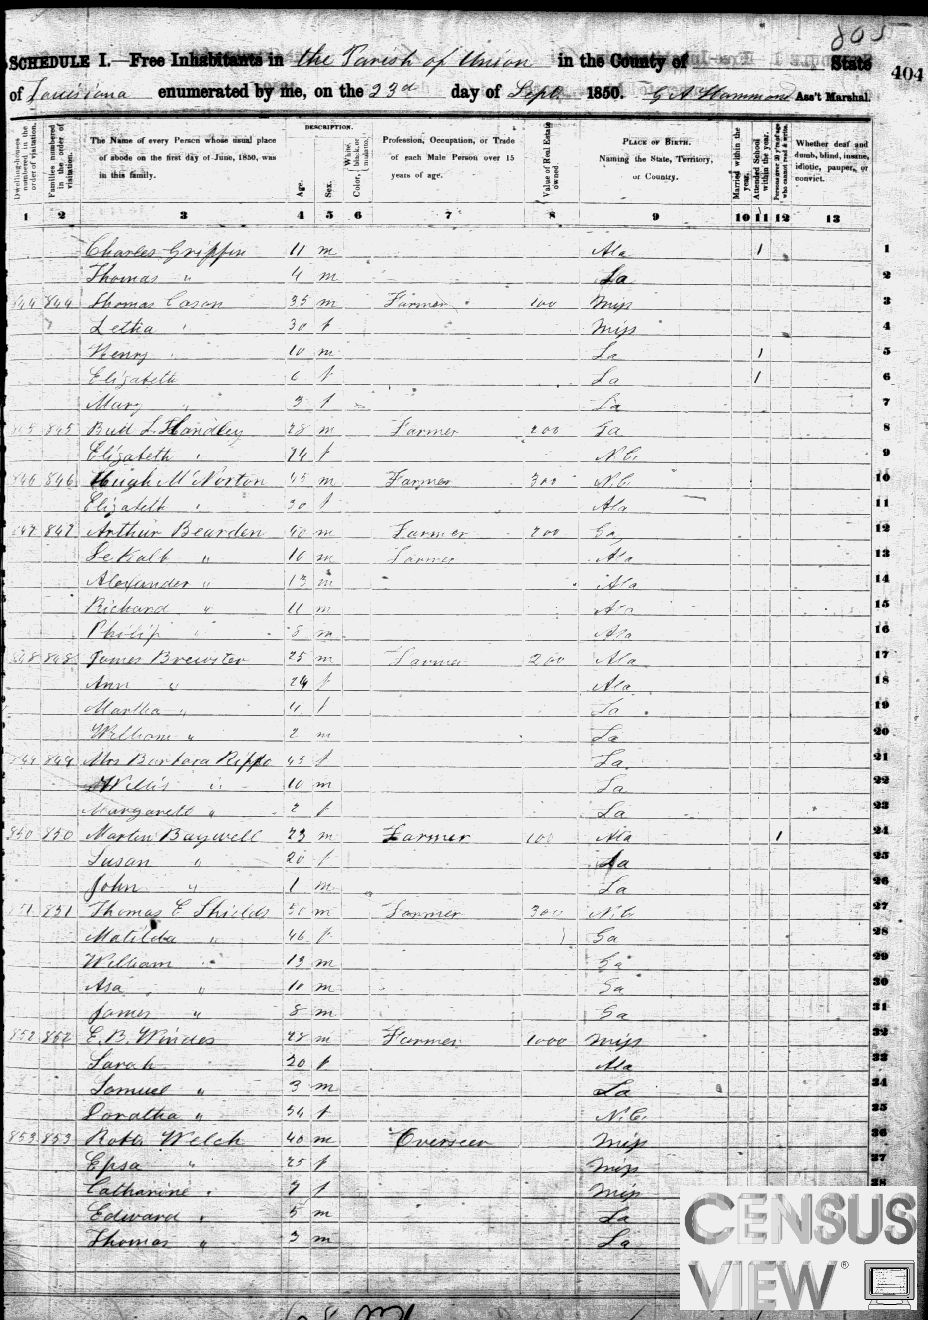 805
SCHEDULE I.—Free Inhabitants in the Parish of Union in the County of State 404
of Louisiana enumerated by me, on the 23d day of Sept 1850. G A Hammond Ass't Marshal.
Dwelling-houses numbered in the order of visitation.
Families numbered in the order of visitation.
The Name of every Person whose usual place of abode on the first day of June, 1850, was in this family.
DESCRIPTION.
Age.
Sex.
Color, White, black, or mulatto.
Profession, Occupation, or Trade of each Male Person over 15 years of age.
Value of Real Estate owned.
PLACE OF BIRTH. Naming the State, Territory, or Country.
Married within the year.
Attended School within the year.
Persons over 20 y'rs of age who cannot read & write.
Whether deaf and dumb, blind, insane, idiotic, pauper, or convict.
1 2 3 4 5 6 7 8 9 10 11 12 13
Charles Griffin 11 m Ala 1 1
Thomas " 4 m La 2
844 844 Thomas Cason 35 m Farmer 100 Miss 3
Letha " 30 f Miss 4
Henry " 10 m La 1 5
Elizabeth 6 f La 1 6
Mary " 3 f La 7
845 845 L Handley 28 m Farmer 200 Ga 8
Elizabeth " 24 f N.C. 9
846 846 Hugh McNorton 45 m Farmer 300 N.C. 10
Elizabeth " 30 f Ala 11
847 847 Arthur Bearden 40 m Farmer 200 Ga 12
DeKalb " m Farmer Ala 13
Alexander " 13 m Ala 14
Richard " 11 m Ala 15
Philip " 8 m Ala 16
848 848 James Brewster 25 m Farmer 200 Ala 17
Ann " 24 f Ala 18
Martha " 4 f La 19
William " 2 m La 20
849 849 Mrs Barbara Rippo 45 f La 21
Willis " 10 m La 22
Margarett " 2 f La 23
850 850 Martin Bagwell 23 m Farmer 100 Ala 1 24
Susan " 20 f La 25
John " 1 m La 26
851 851 Thomas C Shields 50 m Farmer 300 N.C. 27
Matilda " 46 f Ga 28
William " 13 m Ga 29
Asa " 10 m Ga 30
James " 8 m Ga 31
852 852 E. B. Windes 28 m Farmer 1000 Miss 32
Sarah 20 f Ala 33
Samuel " 3 m La 34
Doratha " 54 f N.C. 35
853 853 Robt Welch 40 m Overseer Miss 36
Epsa " 25 f Miss 37
Catharine " 7 f Miss 38
Edward " 5 m La
Thomas " 3 m La
CENSUS
VIEW®